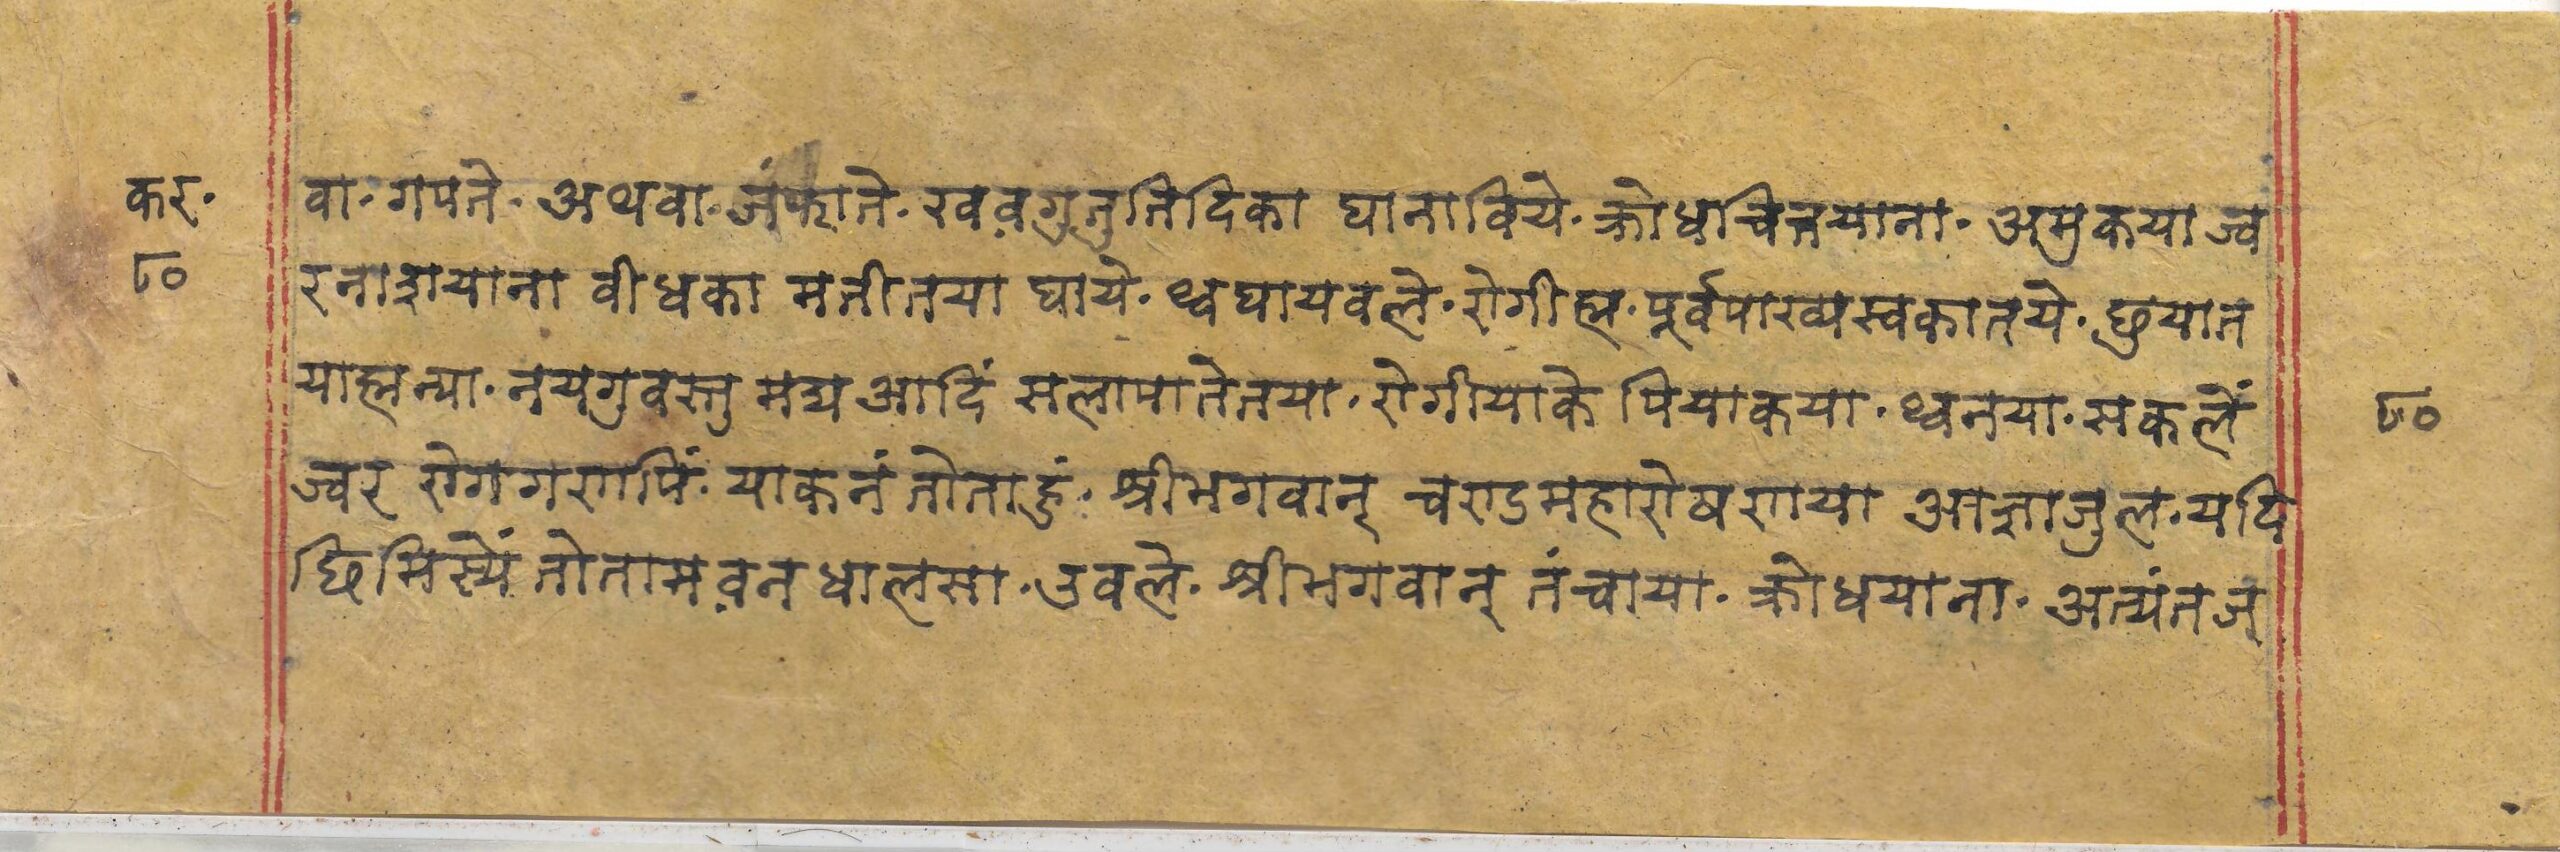 कर· वा· गपते· अथवा· जंफाते· खव़गुतुतिदिका घानाविये· क्रोधचित्तयाना· अमुकया ज्व
८० रनाशयाना वीधका मतीतया घाये· थ्वघायवले· रोगीह्म· पूर्वपाख्यस्वकातये· छुयात
याह्मन्या· नयगुवस्तु मद्य आदिं सलापातेतया· रोगीयाके पियाकया· थ्वनया· सकलें ८०
ज्वर रोगगणपिं· याकनं तोताहुं· श्रीभगवान् चण्डमहारोषणया आज्ञाजुल· यदि
छिमिस्यें तोतामव़न धालसा· उवले· श्रीभगवान् तंचाया· क्रोधयाना· अत्यंतज्